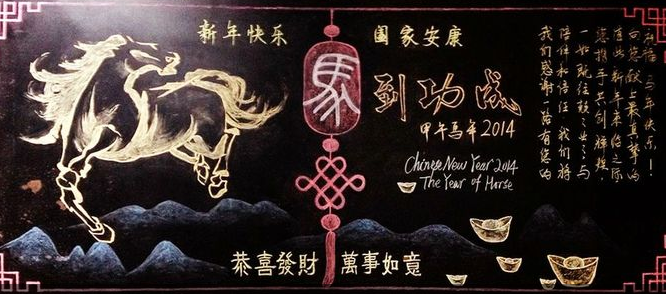 新年快乐
国家安康
馬
到功成
甲午马年2014
Chinese New Year 2014
The Year of Horse
恭喜發財
萬事如意
我们感谢一路有您的
陪伴和信任,我们将
一如既往 与
您携手共创辉煌.
值此新年来临之际
向您献上最真挚的
祝福 马年快乐!